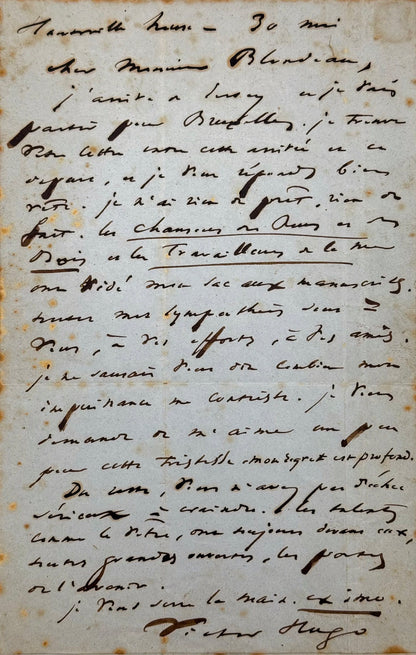 hauteville house – 30 mai
cher Monsieur Blondeau,
j'arrive de Jersey et je vais
partir pour Bruxelles. je trouve
votre lettre entre cette arrivée et ce
départ, et je vous réponds bien
vite. je n'ai rien de prêt, rien de
fait. les Chansons des Rues et des
Bois et les Travailleurs de la mer
ont vidé mon sac aux manuscrits.
toutes mes sympathies sont à
vous, à vos efforts, à vos amis.
je ne saurais vous dire combien mon
impuissance me contriste. je vous
demande de m'aimer un peu
pour cette tristesse. mon regret est profond.
Du reste, vous n'avez pas d'échec
sérieux à craindre. les talents
comme le vôtre, ont toujours devant eux,
toutes grandes ouvertes, les portes
de l'avenir.
je vous serre la main. ex imo.
Victor Hugo